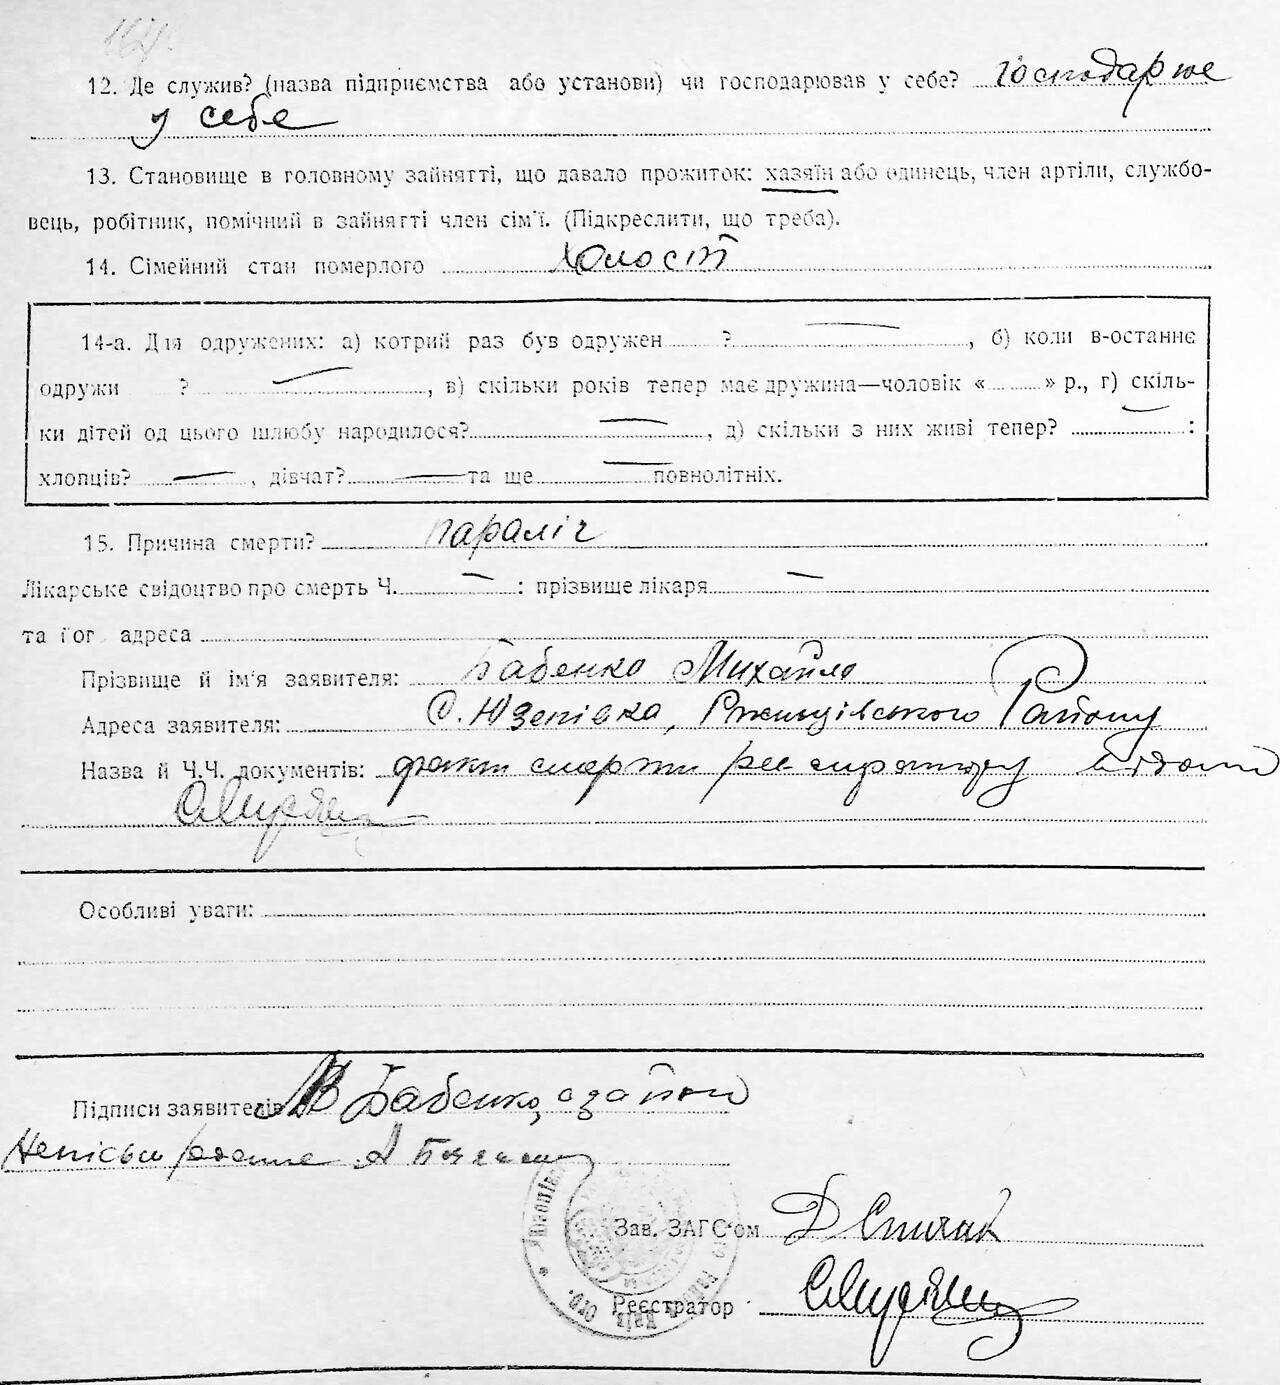 12. Де служив? (назва підприємства або установи) чи господарював у себе? господарює
у себе
13. Становище в головному зайнятті, що давало прожиток: хазяїн або одинець, член артіли, службо-
вець, робітник, помічний в зайнятті член сім'ї. (Підкреслити, що треба).
14. Сімейний стан померлого холостий
14-а. Для одружених: а) котрий раз був одружен ? , б) коли в-останнє
одружи ? , в) скільки років тепер має дружина—чоловік « » р., г) скіль-
ки дітей од цього шлюбу народилося? , д) скільки з них живі тепер? :
хлопців? , дівчат? та ще повнолітніх.
15. Причина смерти? параліч
Лікарське свідоцтво про смерть Ч. : прізвище лікаря
та їог адреса
Прізвище й ім'я заявителя: Бабенко Михайло
Адреса заявителя: с. Юзепівка, Ржищівського Району
Назва й Ч.Ч. документів: факт смерти реєстратору
Особливі уваги:
Підписи заявителів Бабенко,
Зав. ЗАГС'ом
Реєстратор